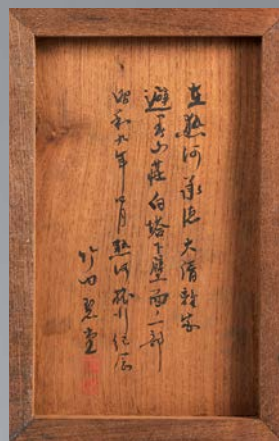 在熱河承徳大隋離宮
避暑山荘白塔下壁面ノ一部
昭和九年四月熱河旅行紀念
竹内碧堂